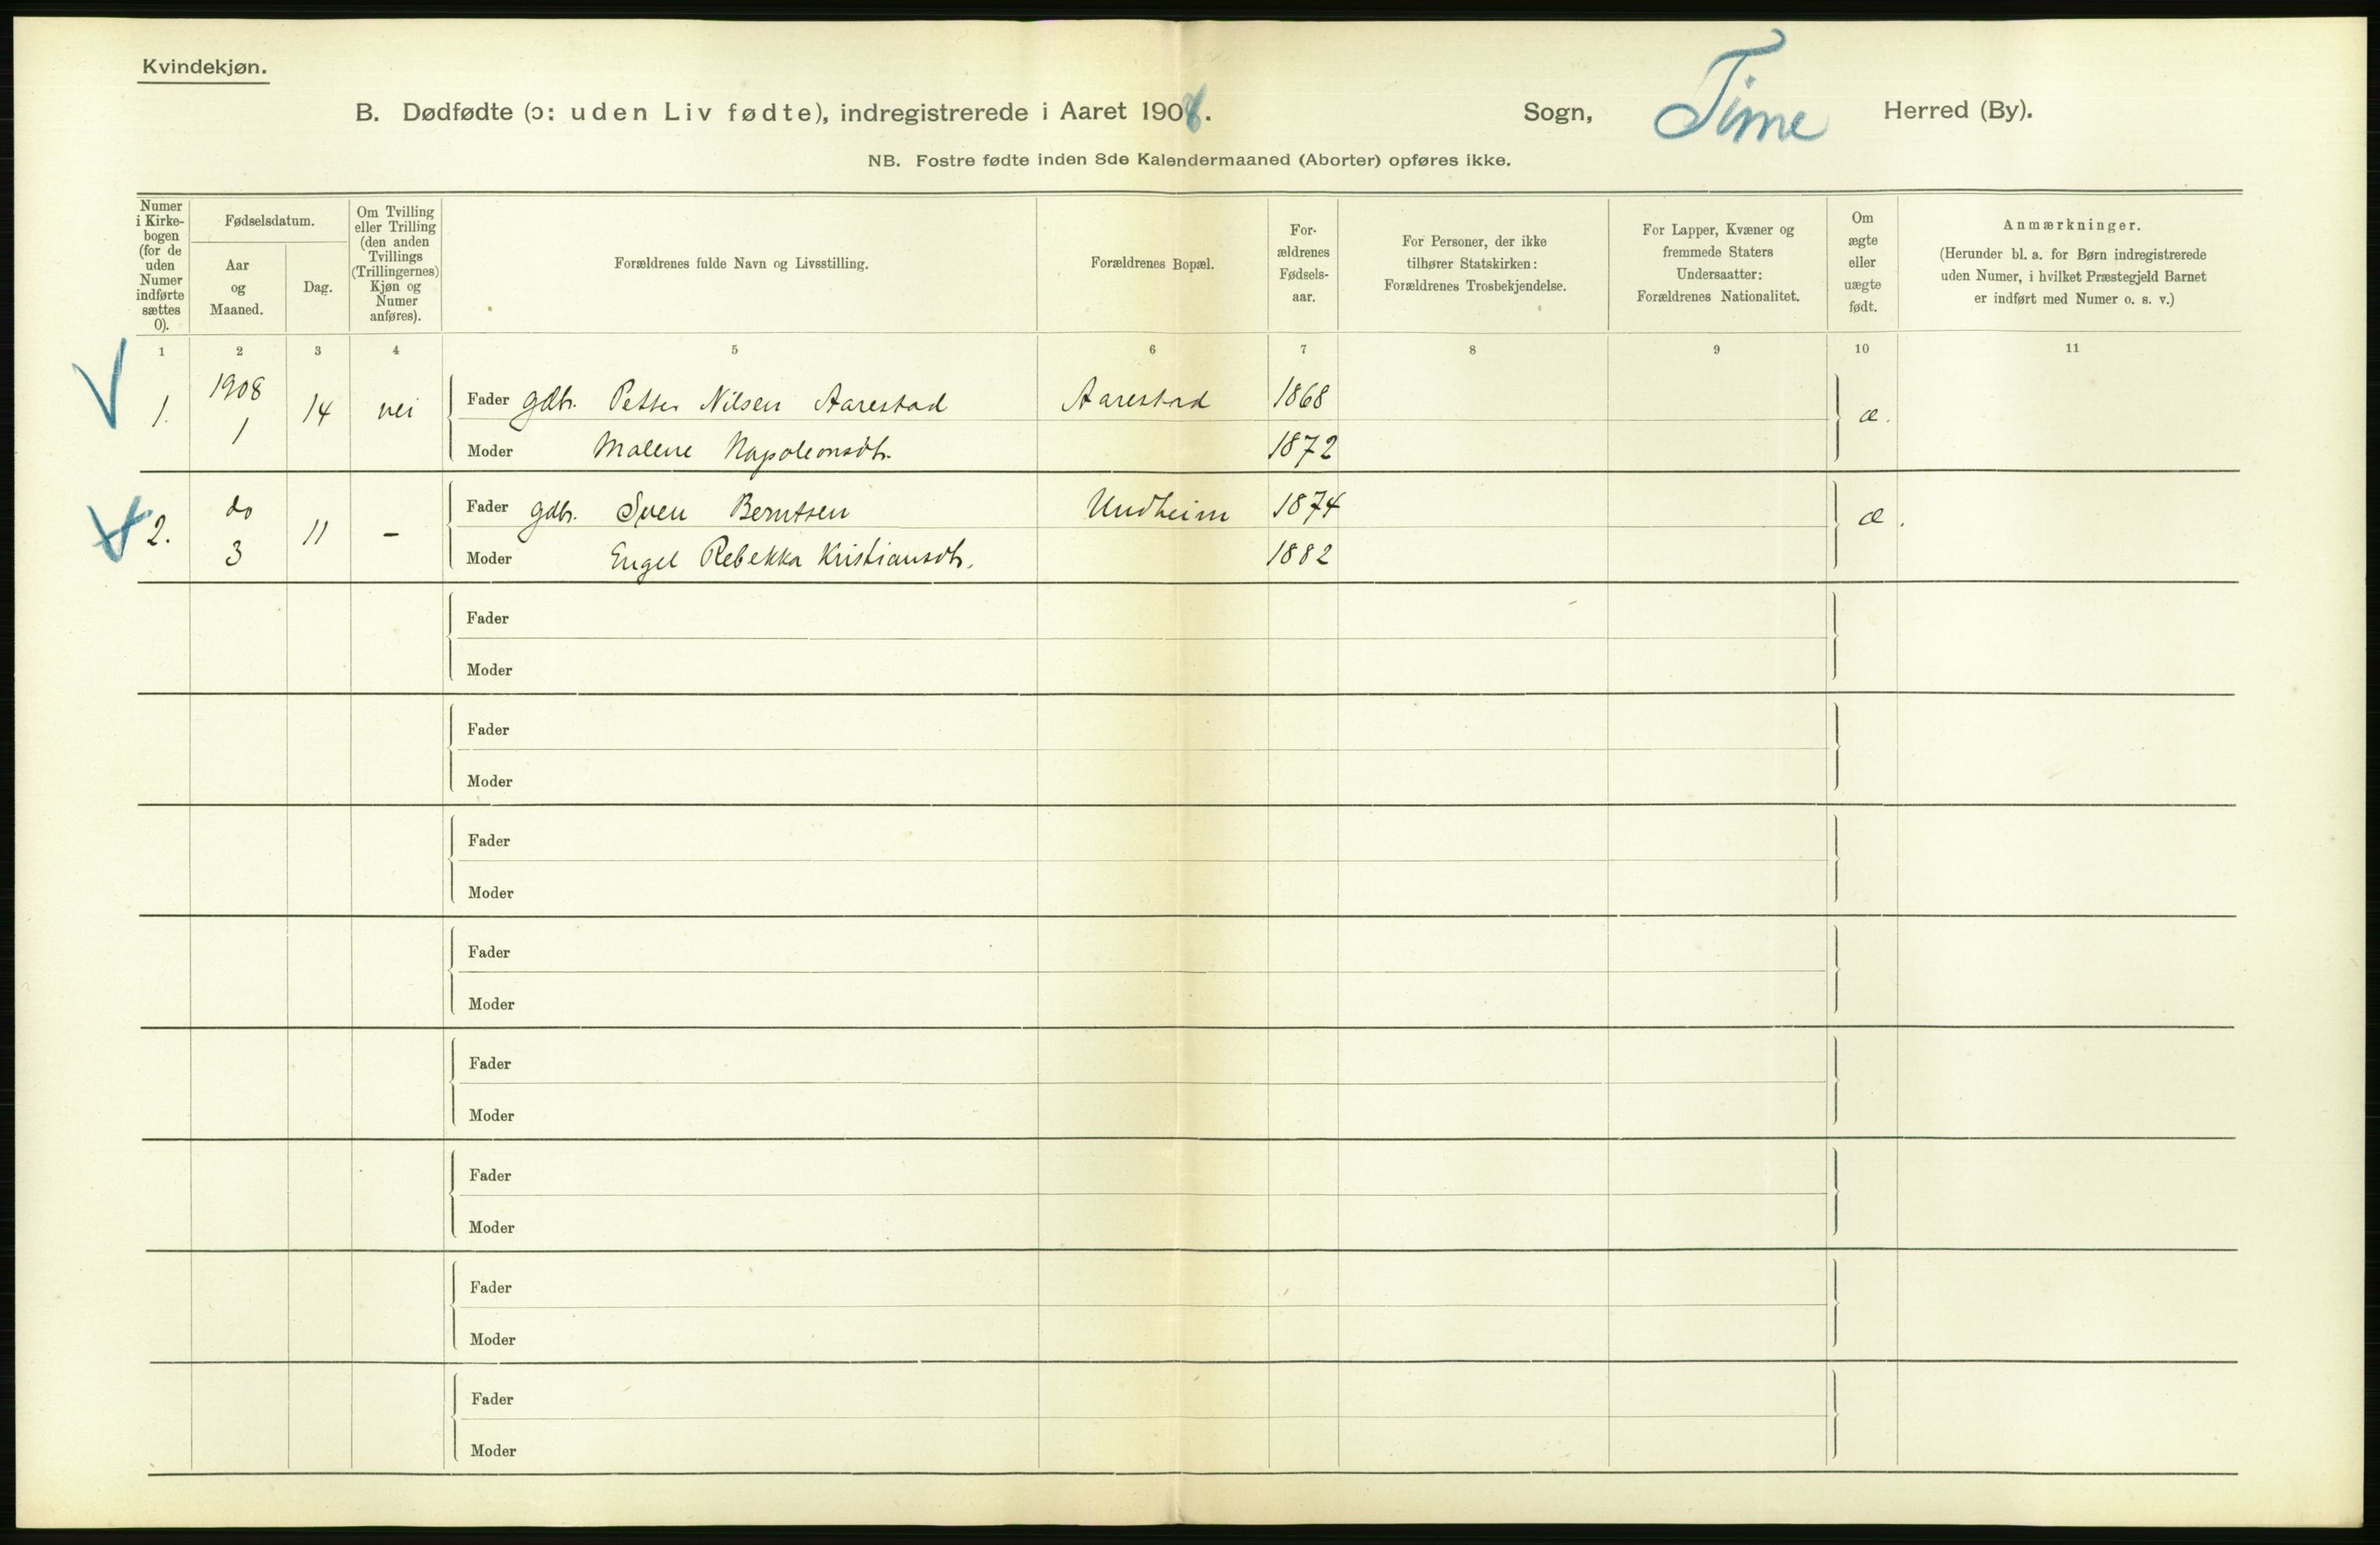 Kvindekjøn.
B. Dødfødte (ɔ: uden Liv fødte), indregistrerede i Aaret 1908. Sogn, Time Herred (By).
NB. Fostre fødte inden 8de Kalendermaaned (Aborter) opføres ikke.
Numer i Kirke-bogen (for de uden Numer indførte sættes 0).
Fødselsdatum.
Aar og Maaned.
Dag.
Om Tvilling eller Trilling (den anden Tvillings (Trillingernes) Kjøn og Numer anføres).
Forældrenes fulde Navn og Livsstilling.
Forældrenes Bopæl.
For-ældrenes Fødsels-aar.
For Personer, der ikke tilhører Statskirken: Forældrenes Trosbekjendelse.
For Lapper, Kvæner og fremmede Staters Undersaatter: Forældrenes Nationalitet.
Om ægte eller uægte født.
Anmærkninger.
(Herunder bl. a. for Børn indregistrerede uden Numer, i hvilket Præstegjeld Barnet er indført med Numer o. s. v.)
1 2 3 4 5 6 7 8 9 10 11
1. 1908 1 14 nei Fader gdbr. Petter Nilsen Aarestad Aarestad 1868 æ.
Moder Malene Napoleonsdtr. 1872
2. do 3 11 – Fader gdbr. Sven Berntsen Undheim 1874 æ.
Moder Engel Rebekka Kristiansdtr. 1882
Fader
Moder
Fader
Moder
Fader
Moder
Fader
Moder
Fader
Moder
Fader
Moder
Fader
Moder
Fader
Moder